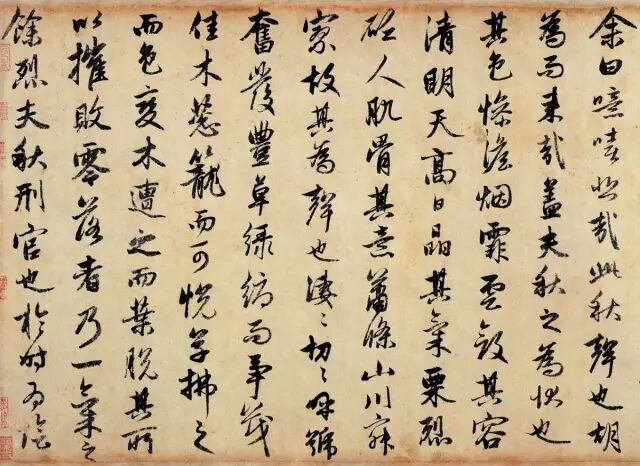 余曰噫嘻悲哉此秋聲也胡
為而来哉盖夫秋之為状也
其色惨澹烟霏雲斂其容
清明天高日晶其氣栗烈
砭人肌骨其意蕭條山川寂
寥故其為聲也凄〻切〻呼號
奮發豐草緑縟而争茂
佳木葱籠而可悦草拂之
而色變木遭之而葉脱其所
以摧敗零落者乃一氣之
餘烈夫秋刑官也於時為陰